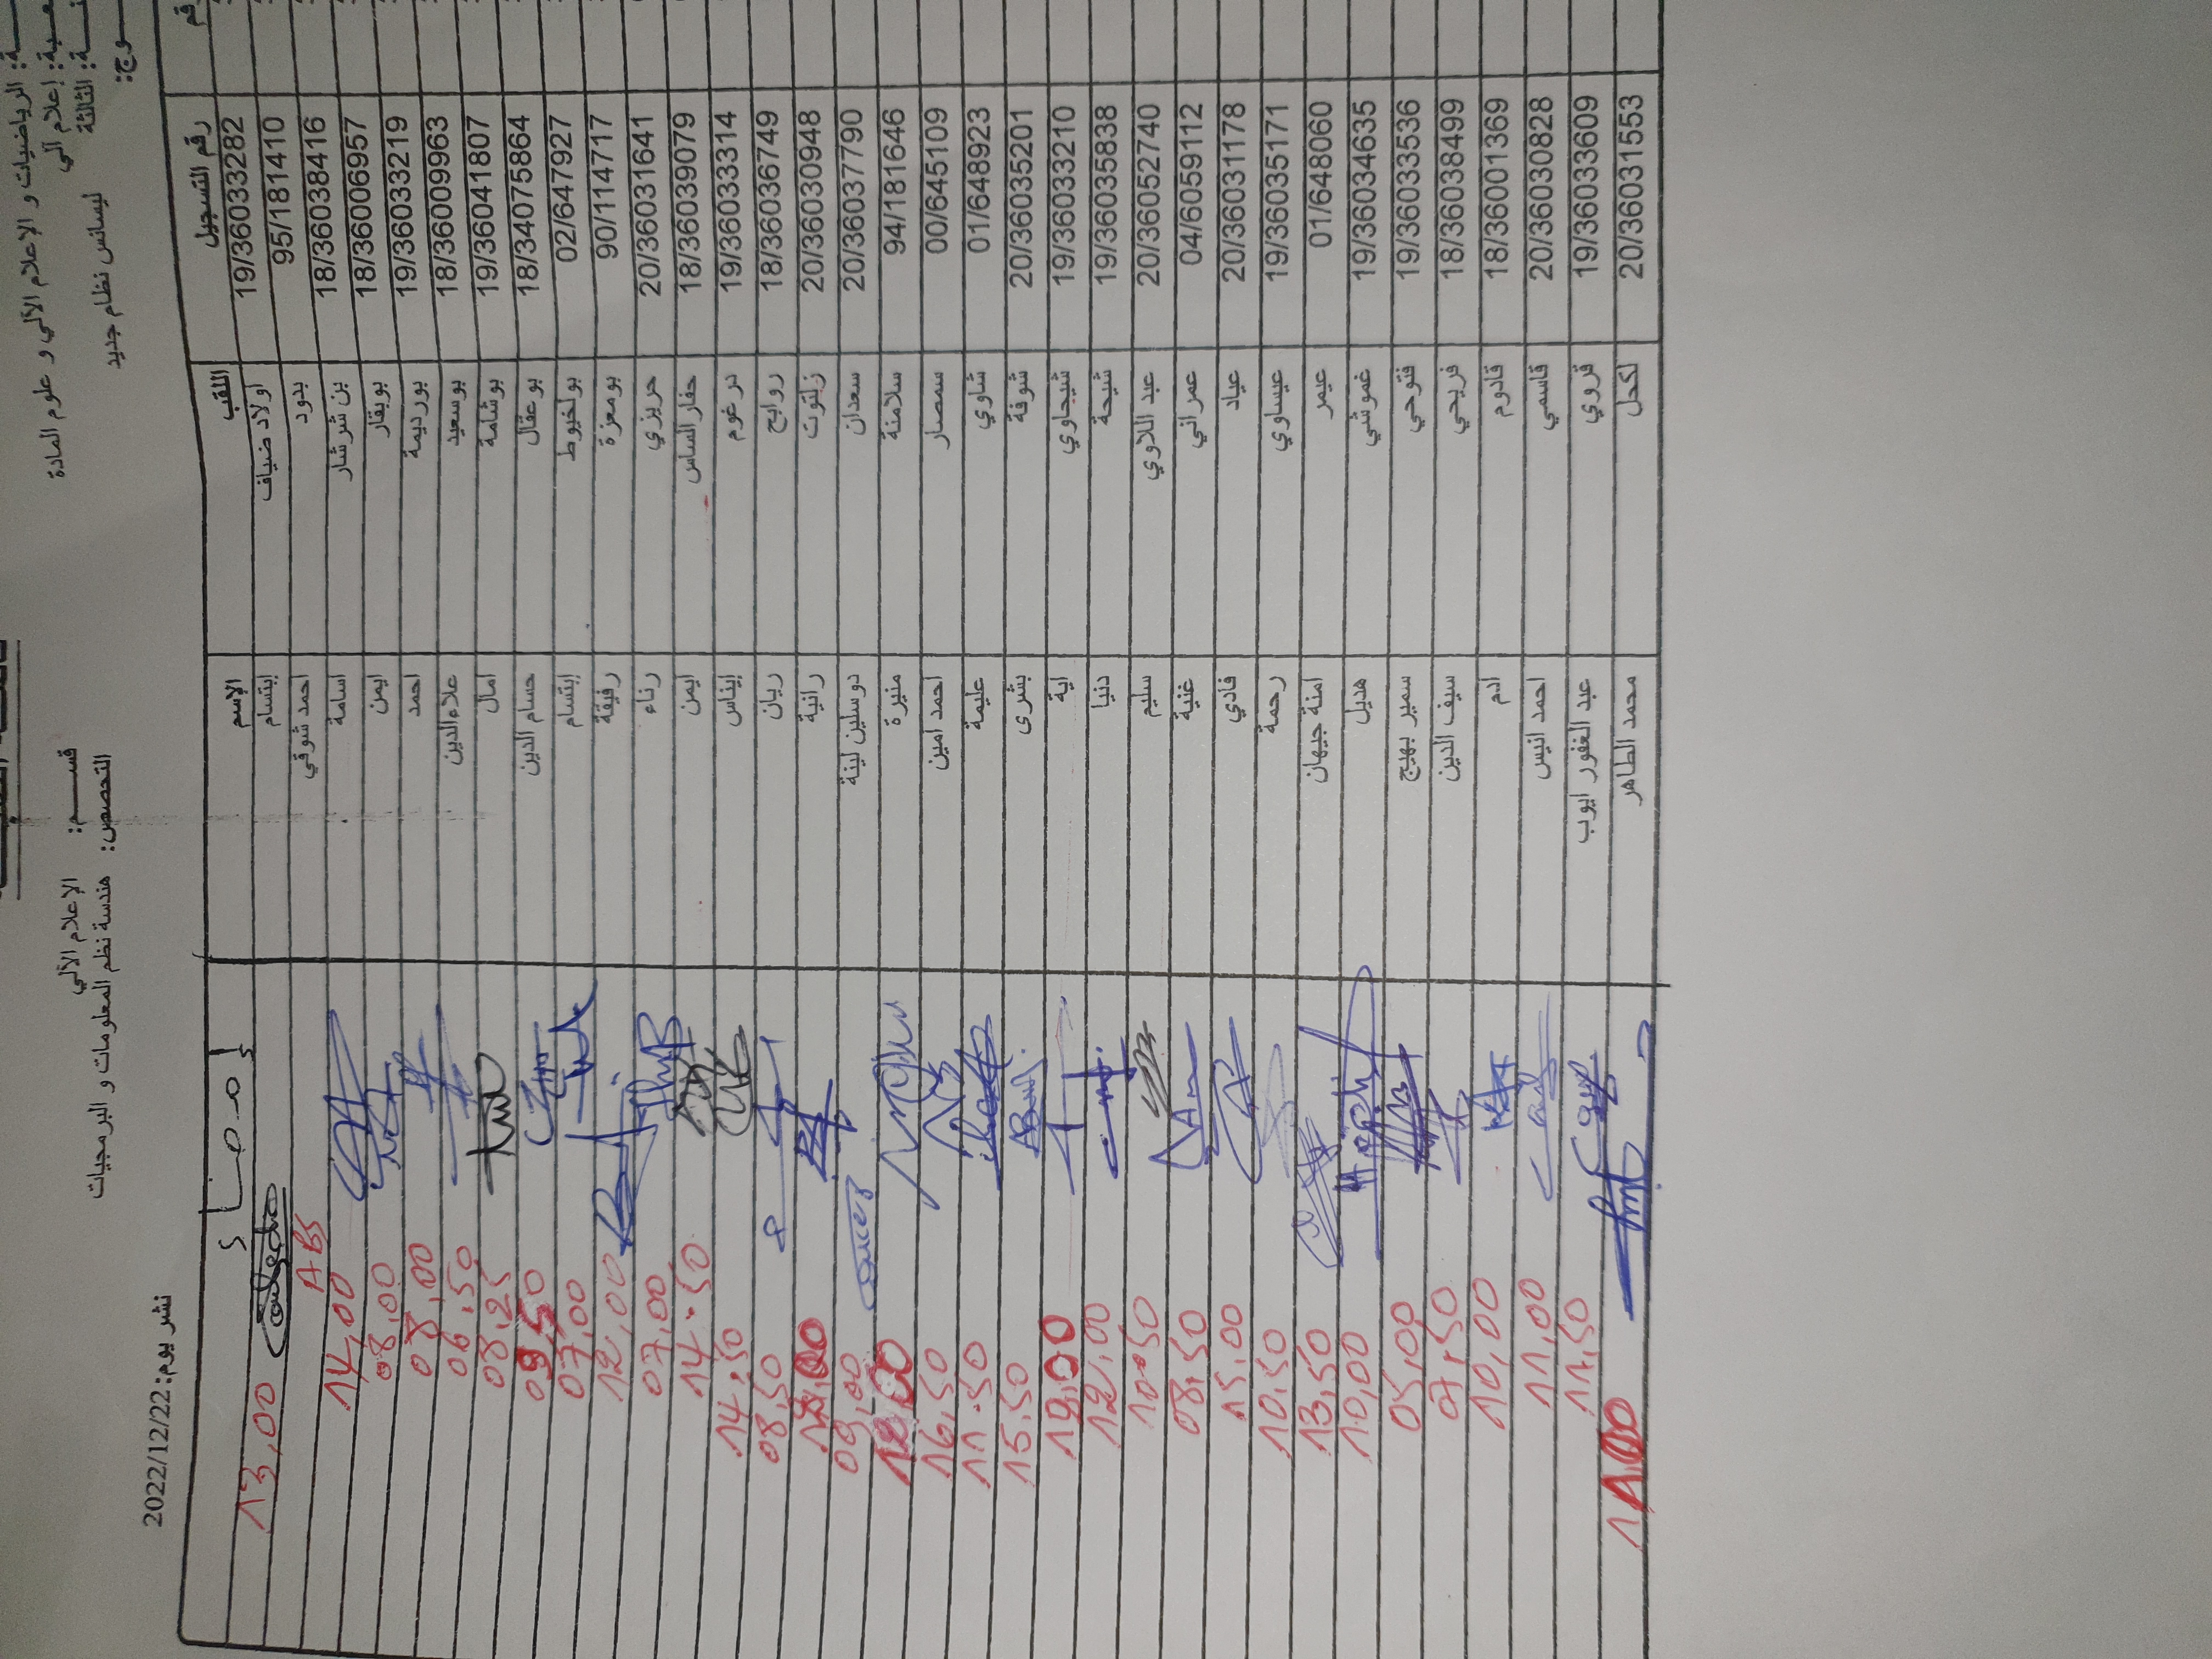 الرياضيات و الإعلام الآلي و علوم المادة
قســـــم: الإعلام الآلي
إعلام آلي
التخصص: هندسة نظم المعلومات و البرمجيات
الثالثة ليسانس نظام جديد
نشر يوم: 2022/12/22
رقم التسجيل اللقب الإسم إمضاء
19/36033282 اولاد ضياف إبتسام 13,00
95/181410 بدود احمد شوقي ABS
18/36038416 بن شرشار اسامة 14,00
18/36006957 بوبقار ايمن 08,00
19/36033219 بورديمة احمد 08,00
18/36009963 بوسعيد علاءالدين 06,50
19/36041807 بوشامة امال 08,25
18/34075864 بوعقال حسام الدين 09,50
02/647927 بولخيوط إبتسام 07,00
90/114717 بومعزة رفيقة 12,00
20/36031641 حريزي رناء 07,00
18/36039079 حفارالساس ايمن 14.50
19/36033314 درغوم إيناس 14,50
18/36036749 روابح ريان 08,50
20/36030948 زلتوت رانية
20/36037790 سعدان دوسلين لينة 09,00
94/181646 سلامنة منيرة
00/645109 سمصار احمد امين 16,50
01/648923 شاوي عليمة 11.50
20/36035201 شوفة بشرى 15.50
19/36033210 شيحاوي اية
19/36035838 شيحة دنيا 12,00
20/36052740 عبد اللاوي سليم 10.50
04/6059112 عمراني غنية 08,50
20/36031178 عياد فادي 15,00
19/36035171 عيساوي رحمة 10,50
01/648060 عيمر امنة جيهان 13,50
19/36034635 غموشي هديل 10,00
19/36033536 فتوحي سمير بهيج 05,00
18/36038499 فريحي سيف الدين 07,50
18/36001369 قادوم ادم 10,00
20/36030828 قاسمي احمد انيس 11,00
19/36033609 قروي عبد الغفور ايوب 11,50
20/36031553 لكحل محمد الطاهر